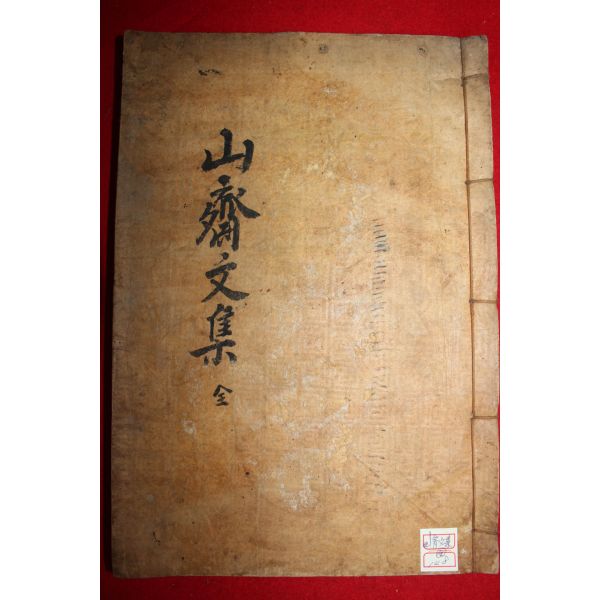 山齋文集 全